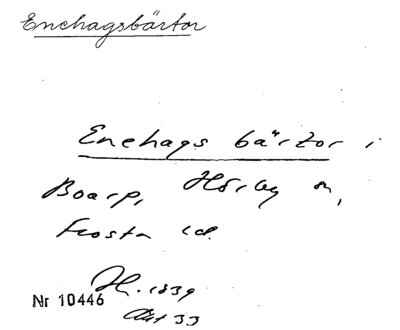 Enehagsbärtor
Enehags bärtor i
Boarp, Hörby sn,
Frosta hd.
H. 1839
Akt 33
Nr 10446